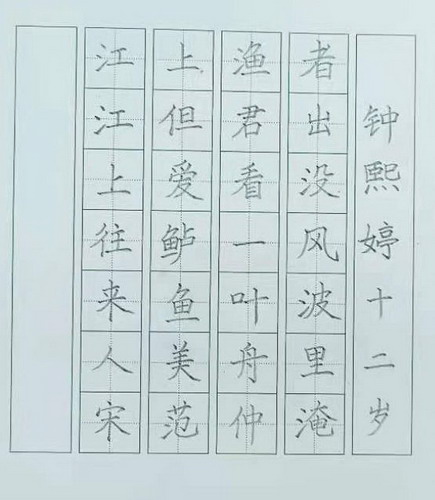 江上渔者
江上往来人
但爱鲈鱼美
君看一叶舟
出没风波里
宋范仲淹
钟熙婷十二岁